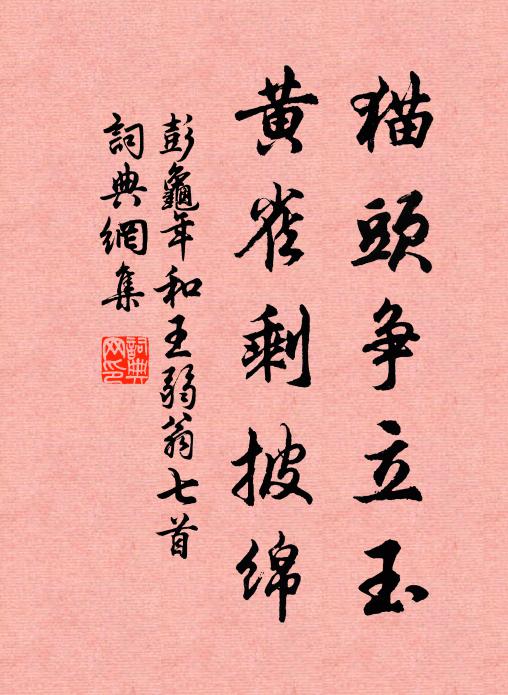 猫頭争立玉
黄雀剩披绵
彭龜年和王弱翁七首
詞典網集
詞典網印